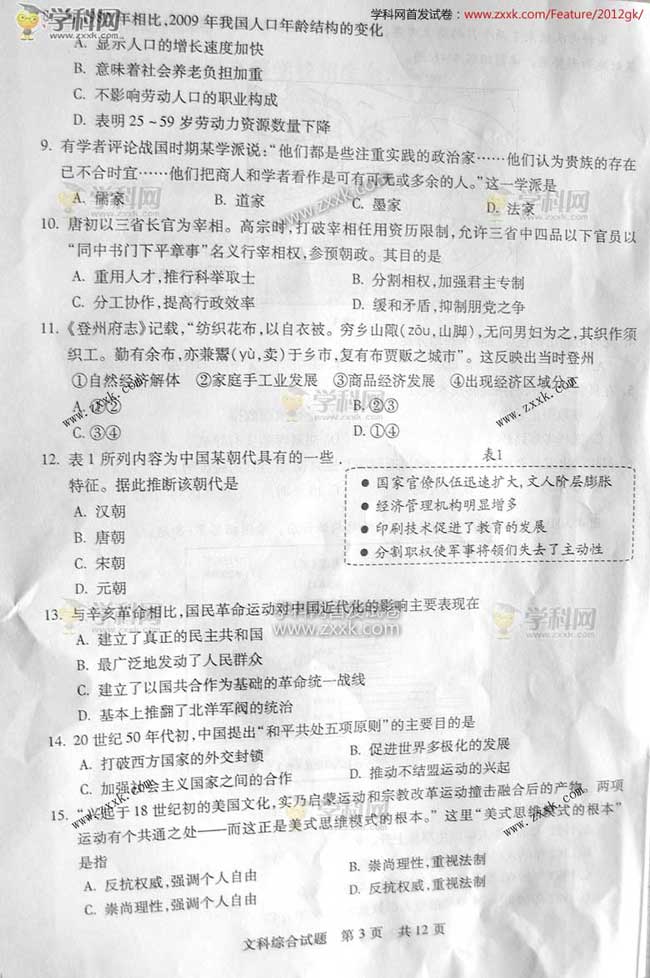 学科网首发试卷：www.zxxk.com/Feature/2012gk/
学科网
年相比,2009 年我国人口年龄结构的变化
A. 显示人口的增长速度加快
B. 意味着社会养老负担加重
C. 不影响劳动人口的职业构成
D. 表明 25～59 岁劳动力资源数量下降
9. 有学者评论战国时期某学派说:“他们都是些注重实践的政治家……他们认为贵族的存在
已不合时宜……他们把商人和学者看作是可有可无或多余的人。”这一学派是
A. 儒家 B. 道家 C. 墨家 D. 法家
10. 唐初以三省长官为宰相。高宗时,打破宰相任用资历限制,允许三省中四品以下官员以
“同中书门下平章事”名义行宰相权,参预朝政。其目的是
A. 重用人才,推行科举取士 B. 分割相权,加强君主专制
C. 分工协作,提高行政效率 D. 缓和矛盾,抑制朋党之争
11. 《登州府志》记载,“纺织花布，以自衣被。穷乡山陬(zōu,山脚),无问男妇为之,其织作须
织工。勤有余布,亦兼鬻(yù,卖)于乡市,复有布贾贩之城市”。这反映出当时登州
①自然经济解体 ②家庭手工业发展 ③商品经济发展 ④出现经济区域分工
A. ①② B. ②③
C. ③④ D. ①④
12. 表 1 所列内容为中国某朝代具有的一些
特征。据此推断该朝代是
A. 汉朝
B. 唐朝
C. 宋朝
D. 元朝
表1
● 国家官僚队伍迅速扩大,文人阶层膨胀
● 经济管理机构明显增多
● 印刷技术促进了教育的发展
● 分割职权使军事将领们失去了主动性
13. 与辛亥革命相比,国民革命运动对中国近代化的影响主要表现在
A. 建立了真正的民主共和国
B. 最广泛地发动了人民群众
C. 建立了以国共合作为基础的革命统一战线
D. 基本上推翻了北洋军阀的统治
14. 20 世纪 50 年代初,中国提出“和平共处五项原则”的主要目的是
A. 打破西方国家的外交封锁 B. 促进世界多极化的发展
C. 加强社会主义国家之间的合作 D. 推动不结盟运动的兴起
15. “兴起于 18 世纪初的美国文化,实乃启蒙运动和宗教改革运动撞击融合后的产物。两项
运动有个共通之处——而这正是美式思维模式的根本。”这里“美式思维模式的根本”
是指
A. 反抗权威,强调个人自由 B. 崇尚理性,重视法制
C. 崇尚理性,强调个人自由 D. 反抗权威,重视法制
文科综合试题 第 3 页 共 12 页